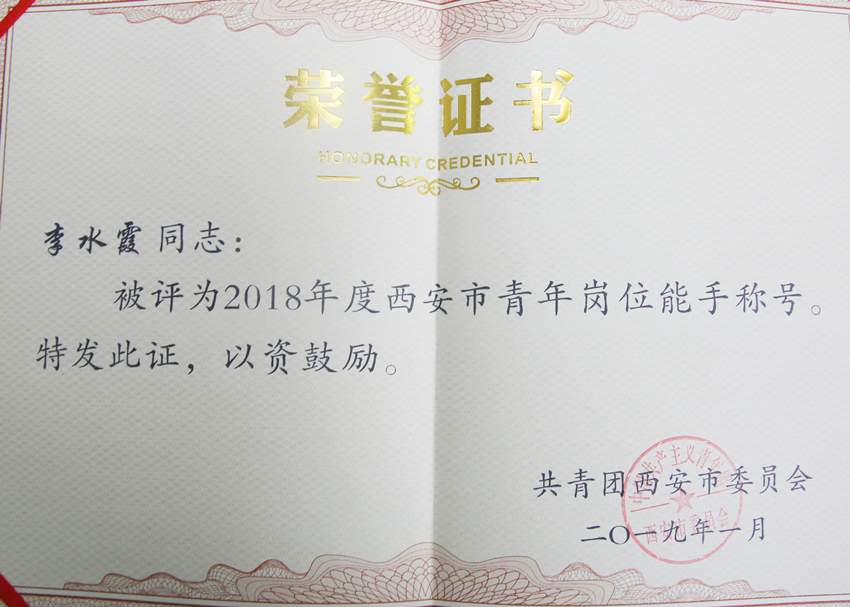 荣誉证书
HONORARY CREDENTIAL
李水霞同志：
被评为2018年度西安市青年岗位能手称号。
特发此证，以资鼓励。
共青团西安市委员会
二〇一九年一月
西安市委员会